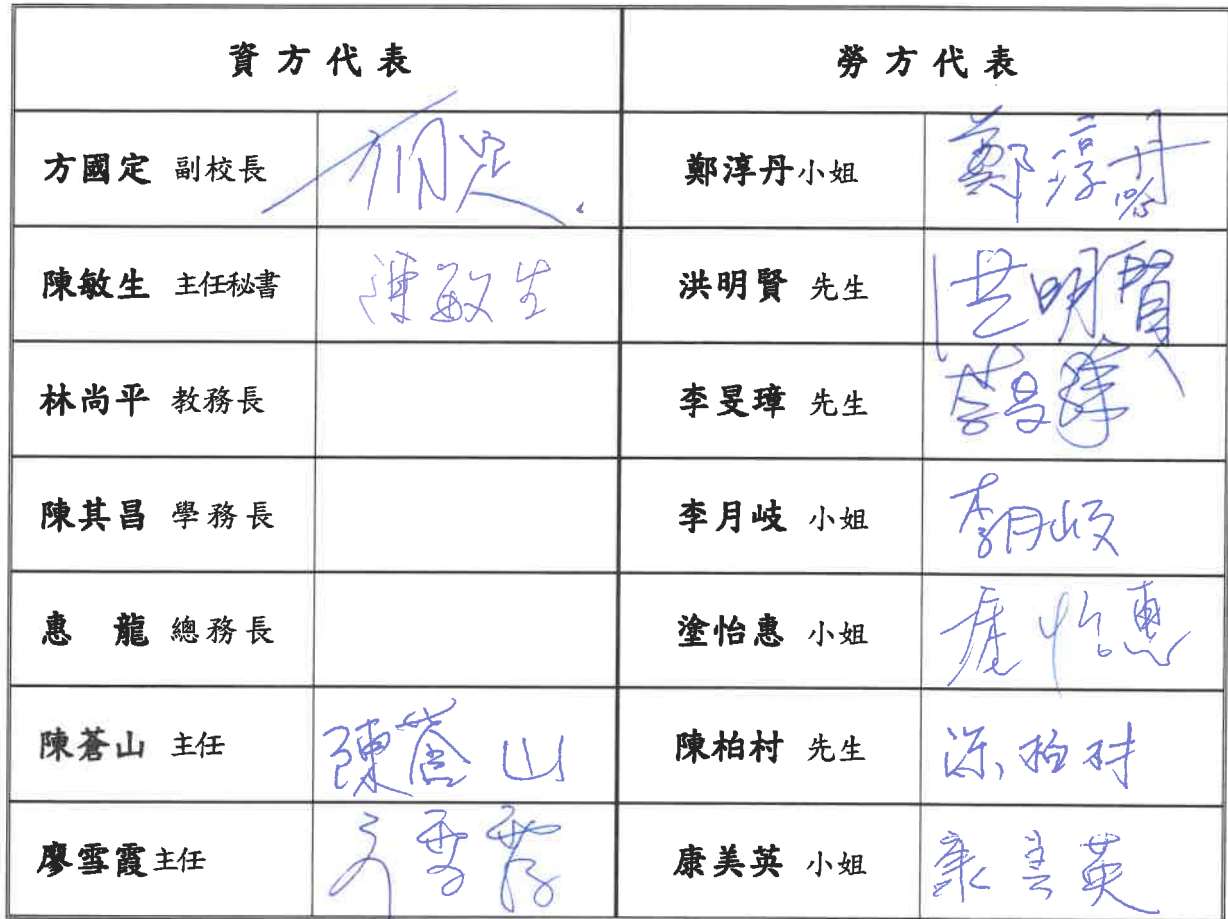 資方代表 勞方代表
方國定 副校長 方國定 鄭淳丹小姐 鄭淳丹 10/5
陳敏生 主任秘書 陳敏生 洪明賢 先生 洪明賢
林尚平 教務長 李旻璋 先生 李旻璋
陳其昌 學務長 李月岐 小姐 李月岐
惠龍 總務長 塗怡惠 小姐 塗怡惠
陳蒼山 主任 陳蒼山 陳柏村 先生 陳柏村
廖雪霞主任 廖雪霞 康美英 小姐 康美英